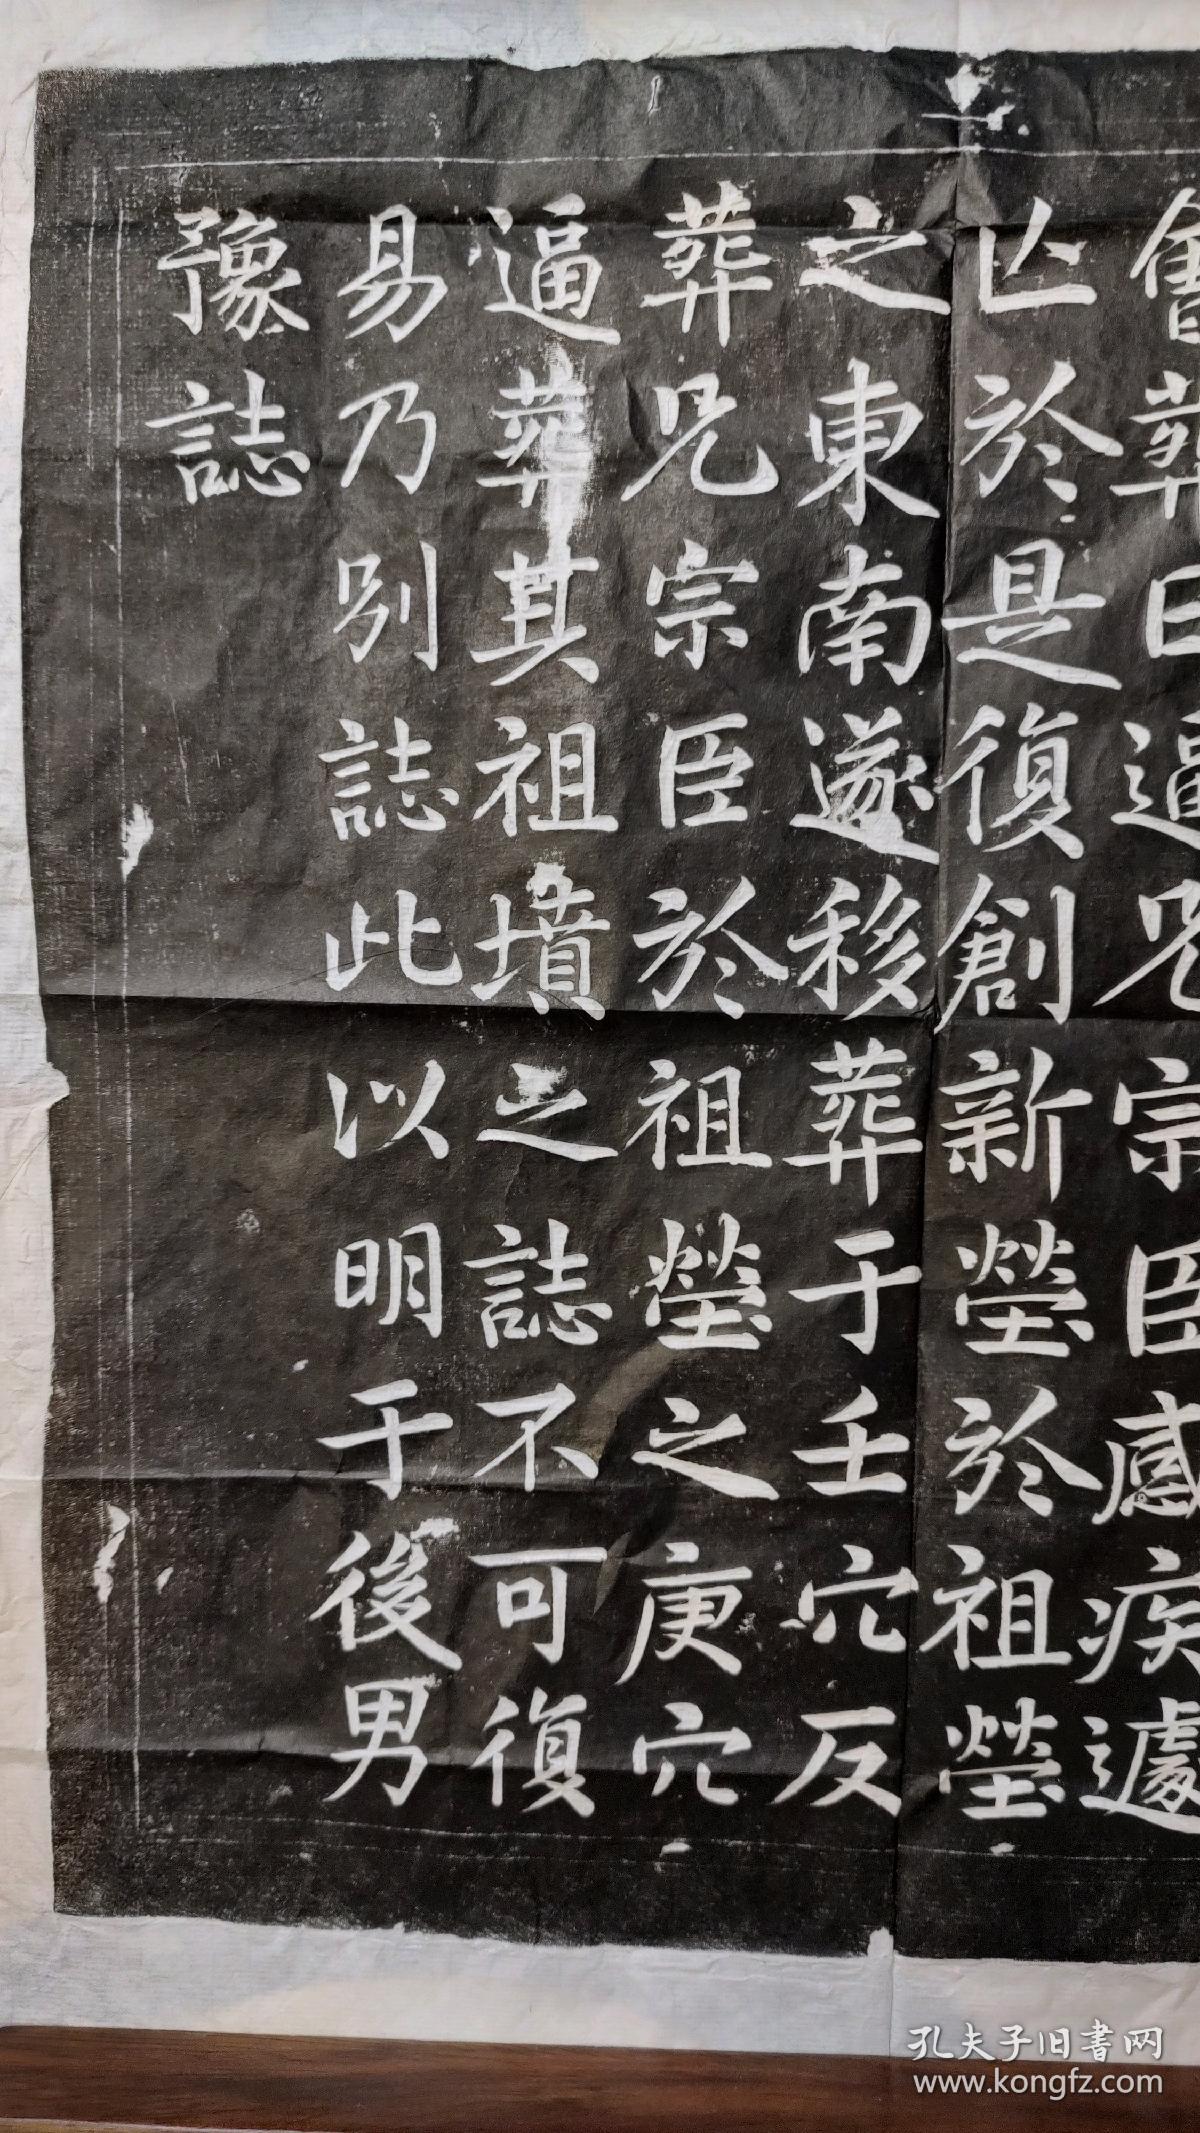 會葬日逼兄宗臣感疾遽
亾於是復創新塋於祖塋
之東南遂移葬于壬穴反
葬兄宗臣於祖塋之庚穴
逼葬其祖墳之誌不可復
易乃别誌此以明于後男
豫誌
孔夫子旧書网
www.kongfz.com